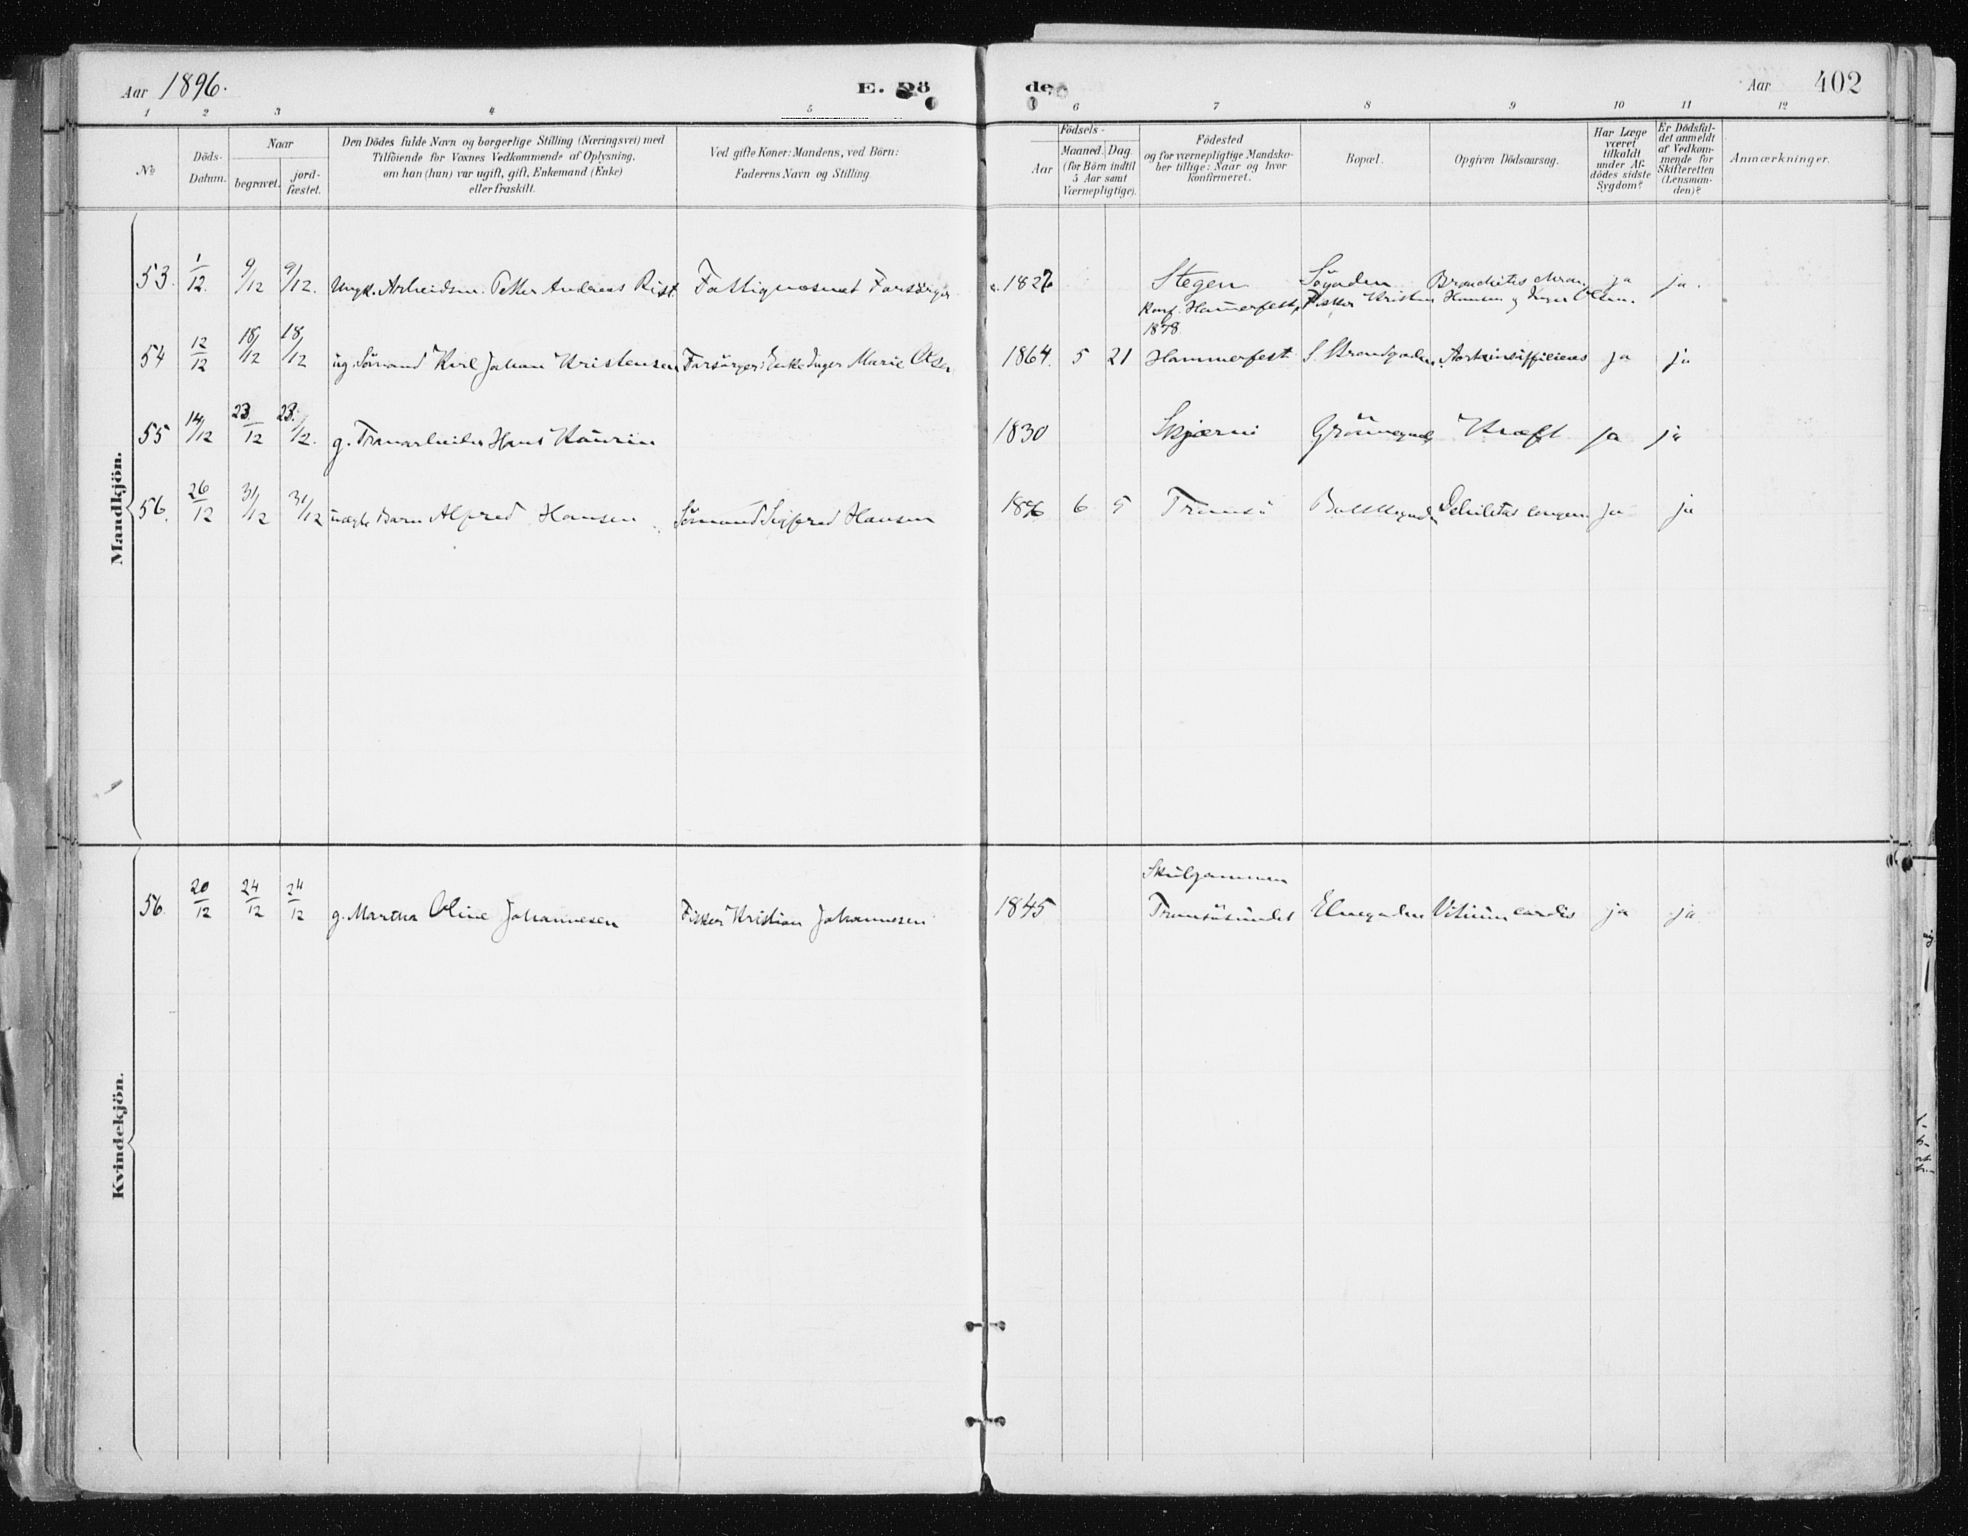 Aar 1896. E. Dö
de Aar 402
1 2 3 4 5
6 7 8 9 10 11 12
No Döds-Datum. Naar begravet. jord-fæstet. Den Dödes fulde Navn og borgerlige Stilling (Næringsvei) med Tilföiende for Voxnes Vedkommende af Oplysning, om han (hun) var ugift, gift, Enkemand (Enke) eller fraskilt. Ved gifte Koner: Mandens, ved Börn: Faderens Navn og Stilling.
Födsels- Aar Maaned. Dag. (for Börn indtil 5 Aar samt Værnepligtige). Födested og for værnepligtige Mandska-ber tillige: Naar og hvor konfirmeret. Bopæl. Opgiven Dödsaarsag. Har Læge været tilkaldt under Af-dödes sidste Sygdom? Er Dödsfal-det anmeldt af Vedkom-mende for Skifteretten (Lensman-den)? Anmærkninger.
Mandkjön.
53. 1/12. 9/12 9/12. Ungk. Arbeidsm. Petter Andreas Rist. Fattigvæsnet Forsörger 1827 Stegen Sögaden Bronchitis chron. ja ja.
Konf. Hammerfest, Fisker Kristen Hansen og Inger Olsen.
1878
54 12/12 18/12 18/12 ug. Sömand Karl Johan Kristensen Forsörger: Enke Inger Marie Olsen 1864. 5 21 Hammerfest S. Strandgaden ja ja
55 14/12 23/12 23/12. g. Tranarbeider Hans Kaurin 1830 Skjærvö Grönnegade Kræft ja ja
56. 26/12 31/12 31/12 uægte Barn Alfred Hansen Sömand Sigfred Hansen 1896 6 5 Tromsö Debilitas congen ja ja
Kvindekjön.
Skulgammen
56. 20/12 24/12 24/12 g. Martha Oline Johannesen Fisker Kristian Johannesen 1845 Tromsösundet Elvegaden Vitium cordis ja ja.